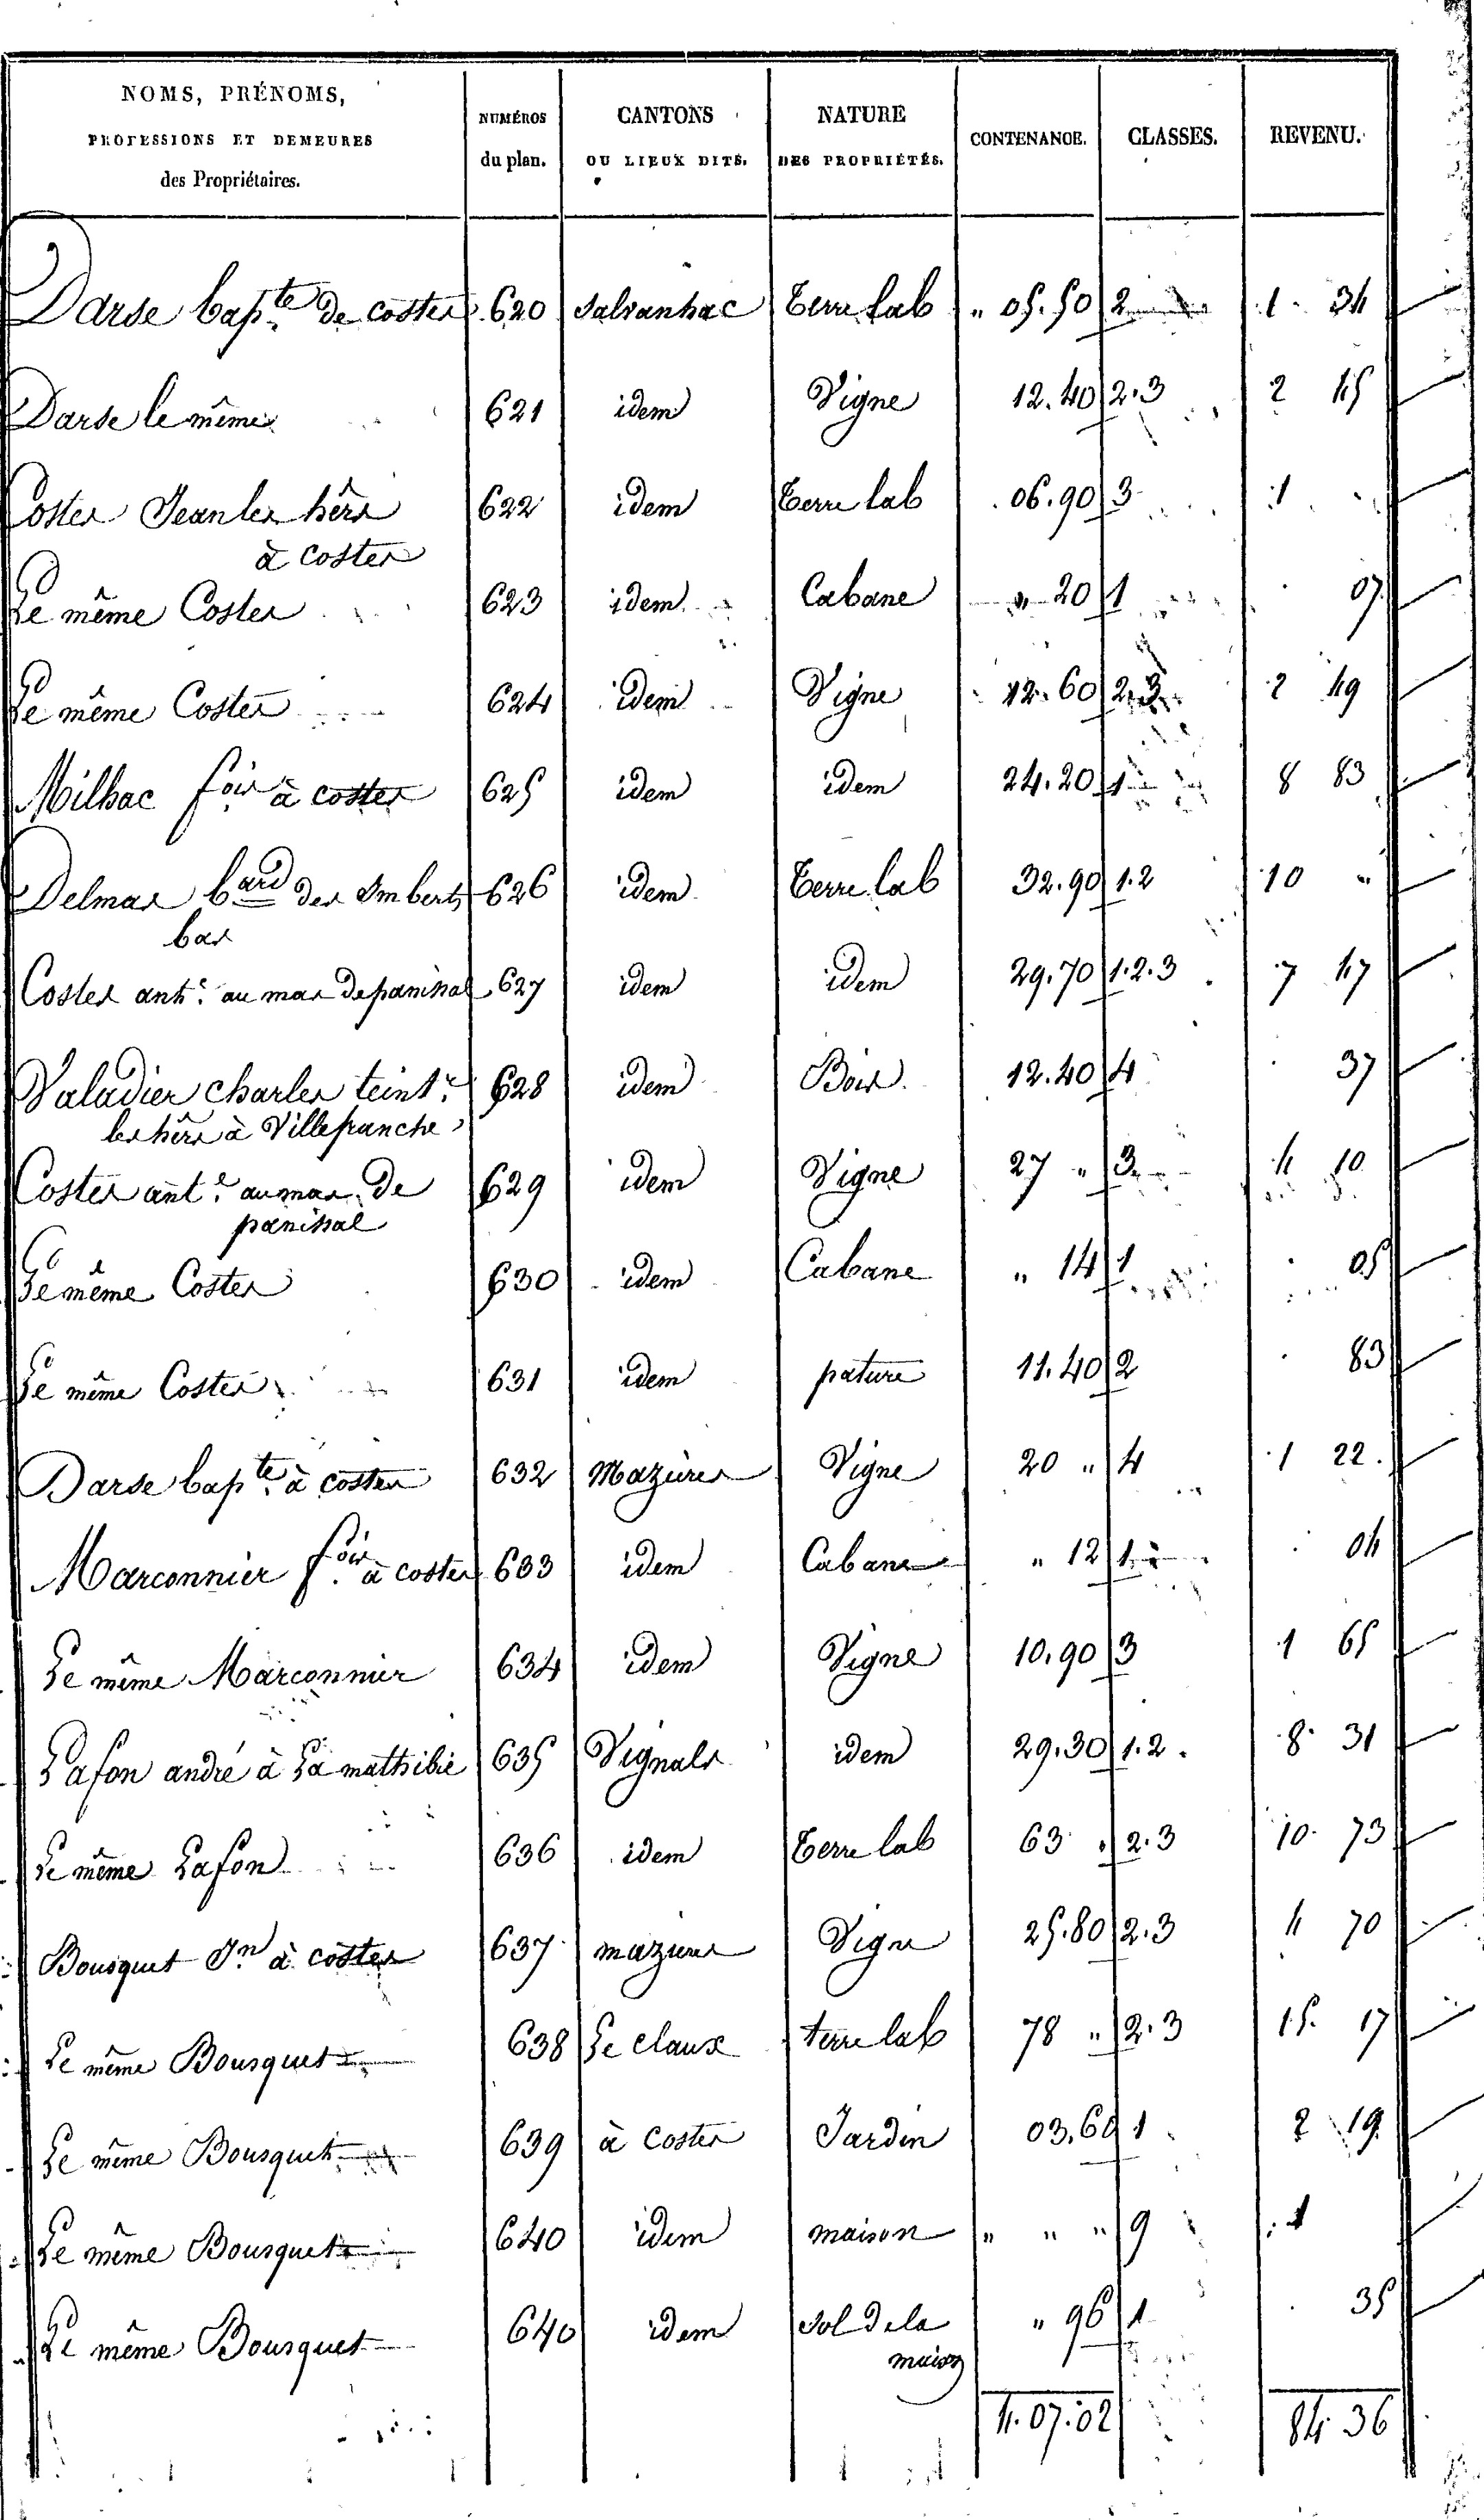 NOMS, PRÉNOMS, PROFESSIONS ET DEMEURES des Propriétaires. | NUMÉROS du plan. | CANTONS OU LIEUX DITS. | NATURE DES PROPRIÉTÉS. | CONTENANCE. | CLASSES. | REVENU.
Darse bapte. de costes 620 Salvanhac Terre lab " 05.50 2 1 34
Darse le même 621 idem Vigne 12.40 2.3 2 45
Costes Jean les hêrs 622 idem Terre lab 06.90 3 1
à costes
Le même Costes 623 idem Cabane " 20 1 07
Le même Costes 624 idem Vigne 12.60 2.3 2 49
Milhac fois à costes 625 idem idem 24.20 1 8 83
Delmas bard des Imberts 626 idem Terre lab 32.90 1.2 10 "
bas
Costes ante. au mas de panissal 627 idem idem 29.70 1.2.3 7 47
Valadier charles teintr. 628 idem Bois 12.40 4 37
les hêrs à Villefranche
Costes ante. au mas de 629 idem Vigne 27 " 3 4 10
panissal
Le même Costes 630 idem Cabane " 14 1 05
Le même Costes 631 idem pature 11.40 2 83
Darse bapte. à costes 632 Mazieres Vigne 20 " 4 1 22
Marconnier fois à costes 633 idem Cabane " 12 1 04
Le même Marconnier 634 idem Vigne 10.90 3 1 65
Lafon andré à La mathibie 635 Vignals idem 29.30 1.2 8 31
Le même Lafon 636 idem Terre lab 63 2.3 10 73
Bousquet Jn. à costes 637 mazieres Vigne 25.80 2.3 4 70
Le même Bousquet 638 Le claux terre lab 78 " 2.3 15 17
Le même Bousquet 639 à costes Jardin 03.60 1 2 19
Le même Bousquet 640 idem maison " " " 9 1
Le même Bousquet 640 idem Sol de la " 96 1 35
maison
4.07.02 84 36